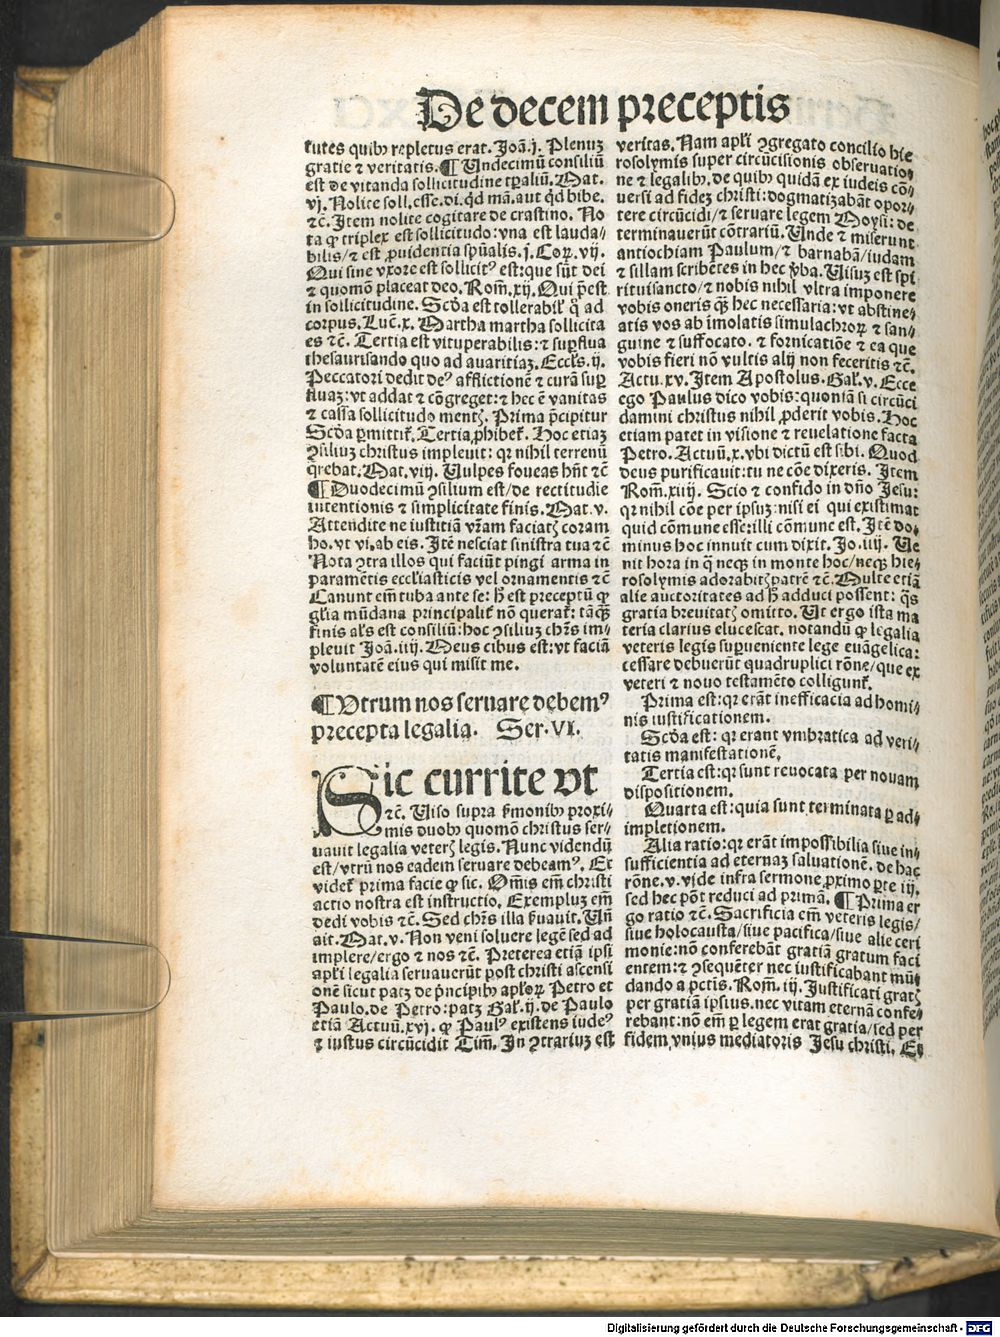 De decem preceptis
tutes quibꝫ repletus erat. Joā.j. Plenuꝫ
gratie ⁊ veritatis. ¶ Undecimū consiliū
est de vitanda sollicitudine tp̄aliū. Mat.
vj. Nolite soll. esse. di. qd mā. aut qd bibe.
⁊c̄. Item nolite cogitare de crastino. No
ta ꝙ triplex est sollicitudo: vna est lauda⸗
bilis/⁊ est ꝓuidentia spūalis. j. Coꝝ. vij.
Qui sine vxore est sollicitꝰ est: que sūt dei
⁊ quomō placeat deo. Rom̄. xij. Qui p̄est
in sollicitudine. Scd̓a est tollerabil̓ q̄ ad
corpus. Luc̄. x. Martha martha sollicita
es ⁊c̄. Tertia est vituperabilis: ⁊ suꝑflua
thesaurisando quo ad auaritiaꝫ. Eccl̓s. ij.
Peccatori dedit deꝰ afflictionē ⁊ curā suꝑ
fluaꝫ: vt addat ⁊ cōgreget: ⁊ hec ē vanitas
⁊ cassa sollicitudo mentꝭ. Prima p̄cipitur
Scd̓a ꝑmittit̓. Tertia ꝓhibet̓. Hoc etiaꝫ
ꝯsiliuꝫ christus impleuit: qꝛ nihil terrenū
q̄rebat. Mat. viij. Vulpes foueas hn̄t ⁊c̄
¶ Duodecimū ꝯsilium est/de rectitudie
intentionis ⁊ simplicitate finis. Mat. v.
Attendite ne iustitiā vr̄am faciatꝭ coram
ho. vt vi. ab eis. Itē nesciat sinistra tua ⁊c̄
Nota ꝯtra illos qui faciūt pingi arma in
paramētis eccl̓iasticis vel ornamentis ⁊c̄
Canunt em̄ tuba ante se: h̓ est preceptū ꝙ
gl̓ia mūdana principalit̓ nō querat̓: tāꝙꝫ
finis al̓s est consiliū: hoc ꝯsiliuꝫ chr̄s im⸗
pleuit Joā. iiij. Meus cibus est: vt faciā
voluntatē eius qui misit me.
¶ Utrum nos seruare debemꝰ
precepta legalia. Ser. VI.
Sic currite vt
⁊c̄. Uiso supra ẜmonibꝫ proxi⸗
mis duobꝫ quomō christus ser⸗
uauit legalia veterꝭ legis. Nunc videndū
est/vtrū nos eadem seruare debeamꝰ. Et
videt̓ prima facie ꝙ sic. Om̄is em̄ christi
actio nostra est instructio. Exempluꝫ em̄
dedi vobis ⁊c̄. Sed chr̄s illa ẜuauit. Uñ
ait. Mat. v. Non veni soluere legē sed ad
implere/ergo ⁊ nos ⁊c̄. Preterea etiā ipsi
apl̓i legalia seruauerūt post christi ascensi
onē sicut patꝫ de p̄ncipibꝫ apl̓oꝝ Petro et
Paulo. de Petro: patꝫ Gal̓. ij. de Paulo
etiā Actuū. xvj. ꝙ Paulꝰ existens iudeꝰ
⁊ iustus circūcidit Tim̄. In ꝯtrariuꝫ est
veritas. Nam apl̓i ꝯgregato concilio hie
rosolymis super circūcisionis obseruatio⸗
ne ⁊ legalibꝫ. de quibꝫ quidā ex iudeis cō⸗
uersi ad fidē christi: dogmatizabāt opor⸗
tere circūcidi/⁊ seruare legem Moysi: de
terminauerūt cōtrariū. Unde ⁊ miserunt
antiochiam Paulum/⁊ barnabā/iudam
⁊ sillam scribētes in hec ꝟba. Uisuꝫ est spi
ritui sancto/⁊ nobis nihil vltra imponere
vobis oneris q̄ꝫ hec necessaria: vt abstine⸗
atis vos ab imolatis simulachroꝝ ⁊ san⸗
guine ⁊ suffocato. ⁊ fornicatiōe ⁊ ea que
vobis fieri nō vultis alij non feceritis ⁊c̄.
Actu. xv. Item Apostolus. Gal̓. v. Ecce
ego Paulus dico vobis: quoniā si circūci
damini christus nihil ꝓderit vobis. Hoc
etiam patet in visione ⁊ reuelatione facta
Petro. Actuū. x. vbi dictū est sibi. Quod
deus purificauit: tu ne cōe dixeris. Item
Rom̄. xiiij. Scio ⁊ confido in dn̄o Jesu:
qꝛ nihil cōe per ipsuꝫ: nisi ei qui existimat
quid cōmune esse: illi cōmune est. Itē do⸗
minus hoc innuit cum dixit. Jo. iiij. Ue
nit hora in q̄ neqꝫ in monte hoc/neqꝫ hie⸗
rosolymis adorabitꝭ patrē ⁊c̄. Multe etiā
alie auctoritates ad h̓ adduci possent: q̄s
gratia breuitatꝭ omitto. Ut ergo ista ma
teria clarius elucescat. notandū ꝙ legalia
veteris legis suꝑueniente lege euāgelica:
cessare debuerūt quadruplici rōne/que ex
veteri ⁊ nouo testamēto colligunt̓.
Prima est: qꝛ erāt inefficacia ad homi⸗
nis iustificationem.
Scd̓a est: qꝛ erant vmbratica ad veri⸗
tatis manifestationē.
Tertia est: qꝛ sunt reuocata per nouam
dispositionem.
Quarta est: quia sunt terminata ꝑ ad⸗
impletionem.
Alia ratio: qꝛ erāt impossibilia siue in⸗
sufficientia ad eternaꝫ saluationē. de hac
rōne. v. vide infra sermone ꝓximo ꝑte iij.
sed hec pōt reduci ad primā. ¶ Prima er
go ratio ⁊c̄. Sacrificia em̄ veteris legis/
siue holocausta/siue pacifica/siue alie ceri
monie: nō conferebāt gratiā gratum faci
entem: ⁊ ꝯsequēter nec iustificabant mū⸗
dando a pctīs. Rom̄. iij. Justificati gratꝭ
per gratiā ipsius. nec vitam eternā confe⸗
rebant: nō em̄ ꝑ legem erat gratia/sed per
fidem vnius mediatoris Jesu christi. Et
Digitalisierung gefördert durch die Deutsche Forschungsgemeinschaft - DFG